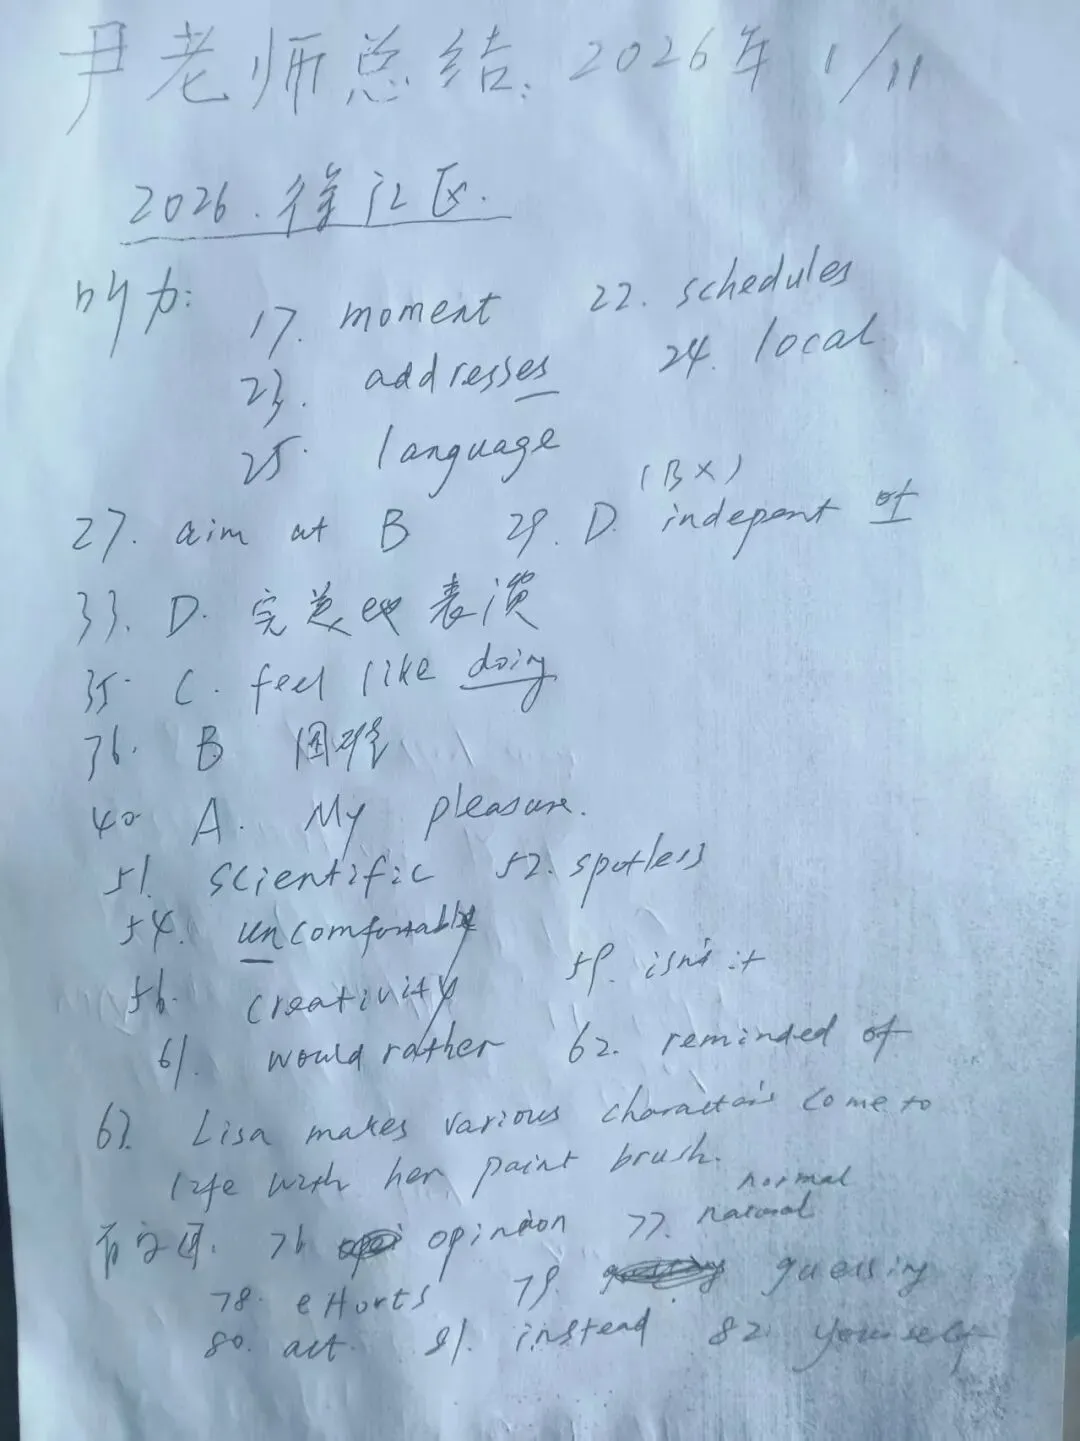 尹老师总结: 2026年 1/11
2026.徐汇区.
听力: 17. moment 22. schedules
23. addresses 24. local
25. language
27. aim at B 29. D. indepent of (B×)
33. D. 完美 表演
35. C. feel like doing
36. B 困难
40 A. My pleasure.
51. scientific 52. spotless
54. uncomfortable
56. creativity 59. isn't it
61. would rather 62. reminded of
63. Lisa makes various characters come to
life with her paint brush.
首字母. 76 opinion 77. natural normal
78. efforts 79. guessing
80. act. 81. instead 82. yourself